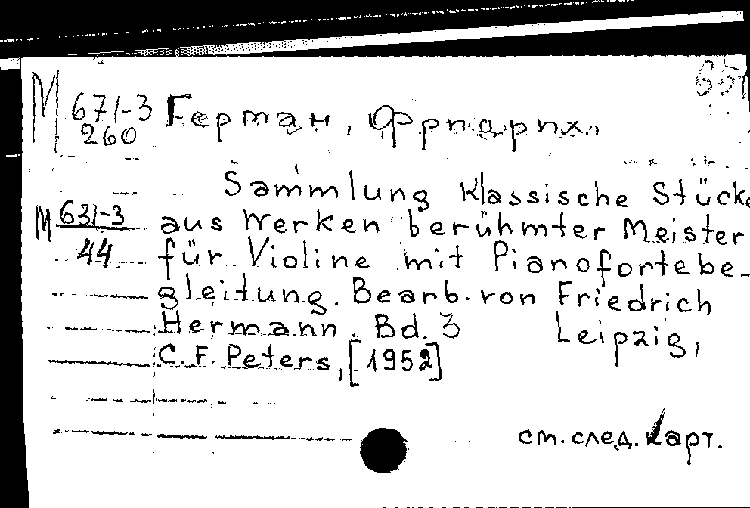 М 671-3
260
Герман, Фридрих.
Sammlung klassische Stücke
М 631-3
44
aus Werken berühmter Meister
für Violine mit Pianofortebe-
gleitung. Bearb. von Friedrich
Hermann. Bd. 3 Leipzig,
C. F. Peters, [1952]
см. след. карт.